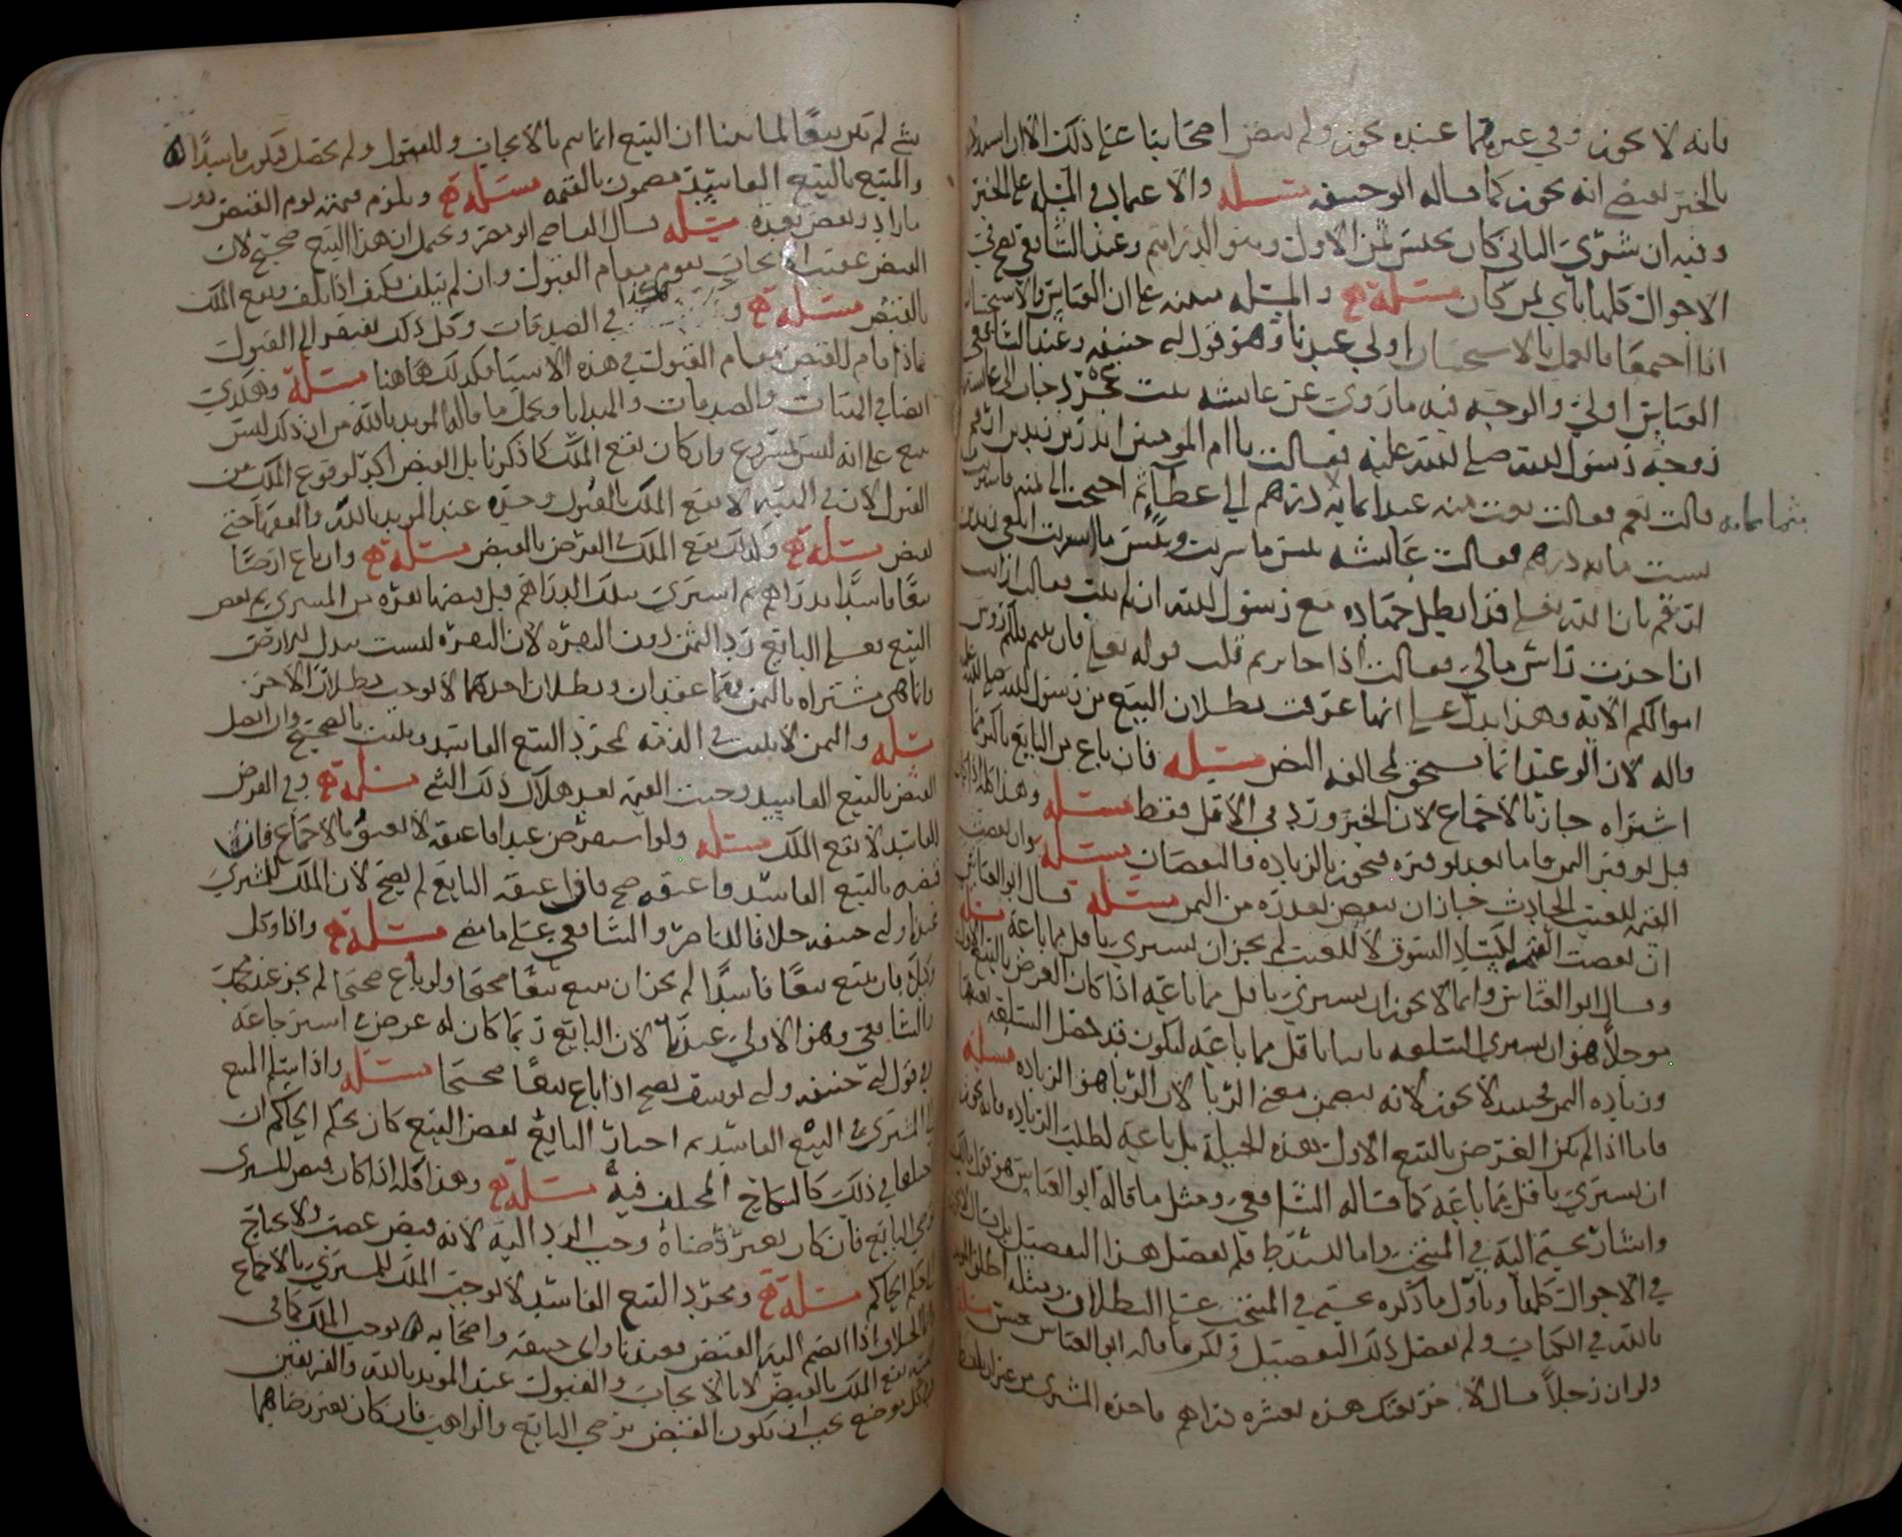 فانه لا يجوز وفي غيره فما عنده يجوز ولم ينص اصحابنا على ذلك الا ان
بالخبر يقضي انه يجوز كما قاله ابو حنيفه مسئله والاعتماد في المسله على الخبر
وفيه ان شرى الثاني كان بجنس ثمن الاول وهو الدراهم وعند الشافعي يصح في
الاحوال كلها باي ثمن كان مسئلة والمسله مبنيه على ان القياس والاستحسان
اذا اجتمعا فالعمل بالاستحسان اولى عندنا وهو قول ابي حنيفه وعند الشافعي
القياس اولى والوجه فيه ما روي عن عايشه
زوجة رسول الله صلى الله عليه فقالت يا ام المومنين ان زيد بن ارقم
قالت نعم فقالت بعت منه عبدا بمايه درهم الى عطائهم احتجت الى ثمنه فاشتريته
بثمانمايه
بست مايه درهم فقالت عايشه بئس ما شريت وبئس ما اشتريت ابلغي زيد بن
ارقم بان الله تعالى قد ابطل جهاده مع رسول الله ان لم يتب فقالت ارايت
ان اخذت راس مالي فقالت اذا جايز ثم قلت قوله تعالى فان تبتم فلكم رؤس
اموالكم الايه وهذا يدل على انها عرفت بطلان البيع من رسول الله صلى الله
قاله لان الوعيد انما يستحق لمخالفه النص مسئله فان باع من البايع باكثر مما
اشتراه جاز بالاجماع لان الخبر ورد في الاقل فقط مسئله وهذا كله اذا كان
قبل توفير الثمن فاما بعد توفيره فيجوز بالزياده والنقصان مسئله وان نقصت
القيمه للعيب الحادث جاز ان ينقص بقدره من الثمن مسئله قال ابو العباس
ان نقصت القيمه لكساد السوق لا للعيب لم يجز ان يشتري باقل مما باعه مسئله
وقال ابو العباس وانما لا يجوز ان يشتري باقل مما باعه اذا كان الغرض بالبيع الاول
موجلا هو ان يشتري السلعه باقل مما باعه ليكون قد حصل السلعه
وزياده الثمن فحينئذ لا يجوز لانه يتضمن معنى الربا لان الربا هو الزياده مسئله
فاما اذا لم يكن الغرض بالبيع الاول بهذه الحيلة بل باعه لطلب الزياده فانه يجوز
ان يشتري باقل مما باعه كما قاله الشافعي ومثل ما قاله ابو العباس هو قول مالك
واشار يحيى اليه في المنتخب واما السيد ط فلم يفصل هذا التفصيل بل قال لا يجوز
في الاحوال كلها وتاول ما ذكره يحيى في المنتخب على البطلان ومثله اطلق المويد
بالله في ولم يفصل ذلك التفصيل ولكن ما قاله ابو العباس حسن مسئله
ولو ان رجلا قال لاخر بعتك هذه بعشره دراهم فاخذه المشتري من غير ان يلفظ
شي لم يكن بيعا لما بينا ان البيع انما يتم بالايجاب والقبول ولم يحصل فيكون فاسدا
والمبيع بالبيع الفاسد مضمون بالقيمه مسئلة ويلزم قيمته يوم القبض دون
ما زاد ونقص بعده مسئله قال القاضي ابو مضر ويحتمل ان هذا البيع صحيح لان
القبض عقيب الايجاب يقوم مقام القبول وان لم يتلف فكيف اذا تلف ويقع الملك
بالقبض مسئلة و هكذا في الصدقات وكل ذلك يفتقر الى القبول
فاذا قام القبض مقام القبول في هذه الاشيا فكذلك هاهنا مسئلة وهكذي
ايضا في الهبات والصدقات والهدايا ويحمل ما قاله المويد بالله من ان ذلك ليس
ببيع على انه ليس بمشروع وان كان يقع الملك كما ذكرنا بل القبض اكد لوقوع الملك من
القبول لان في الهبه لا يقع الملك بالقبول وحده عند المويد بالله والفقها حتى
يقبض مسئلة وكذلك يقع الملك في القرض بالقبض مسئلة وان باع ارضا
بيعا فاسدا بدراهم ثم اشترى بتلك الدراهم قبل قبضها بقره من المشتري ثم نقض
البيع فعلى البايع رد الثمن دون البقره لان البقره ليست بدل الارض
وانما هي مشتراه بالثمن فهما عقدان وبطلان احدهما لا يوجب بطلان الاخر
مسئله والثمن لا يثبت في الذمه بمجرد البيع الفاسد ويثبت بالصحيح وان اتصل
القبض بالبيع الفاسد وجبت القيمه بعد هلاك ذلك الشي مسئلة وفي القرض
الفاسد لا يقع الملك مسئله ولو استقرض عبدا فاعتقه لا يعتق بالاجماع فان
قبضه بالبيع الفاسد فاعتقه صح فان اعتقه البايع لم يصح لان الملك للمشتري
عندنا وابي حنيفه خلافا للناصر والشافعي على ما مضى مسئلة واذا وكل
وكيلا بان يبيع بيعا فاسدا لم يجز ان يبيع بيعا صحيحا ولو باع صحيحا لم يجز عند محمد
والشافعي وهذا الاولى عندنا لان البايع ربما كان له غرض في استرجاعه
وفي قول ابي حنيفه وابي يوسف يصح اذا باع بيعا صحيحا مسئله واذا سلم المبيع
الى المشتري في البيع الفاسد ثم اختار البايع نقض البيع كان بحكم الحاكم ان
اختلفا في ذلك كالنكاح المختلف فيه مسئلة وهذا كله اذا كان قبض المشتري
برضي البايع فان كان بغير رضاه وجب الرد اليه لانه قبض غصب ولا يحتاج
الى حكم الحاكم مسئلة ومجرد البيع الفاسد لا يوجب الملك للمشتري بالاجماع
وانما الخلاف اذا انضم اليه القبض فعندنا وابي حنيفه واصحابه هو يوجب الملك كما في
الهبه يقع الملك بالقبض لا بالايجاب والقبول عند المويد بالله والفريقين
وفي كل موضع يجب ان يكون القبض برضي البايع والواهب فان كان بغير رضاهما